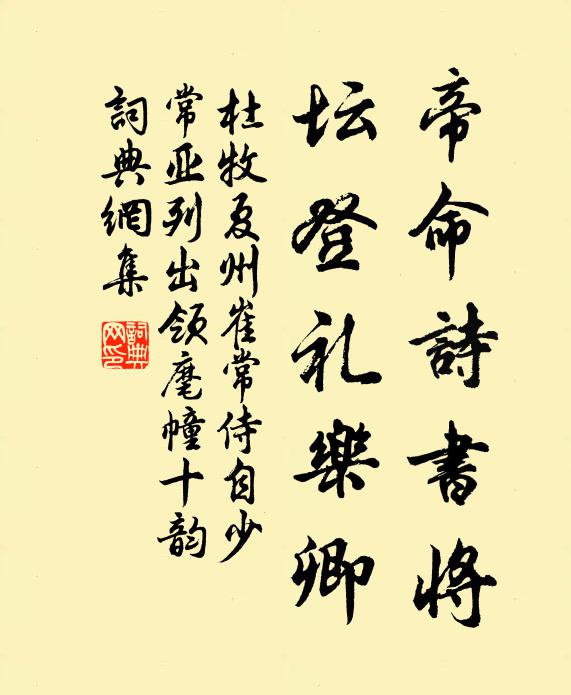 帝命詩書將
坛登礼樂卿
杜牧夏州崔常侍自少
常亚列出领麾幢十韵
詞典網集
詞典网印